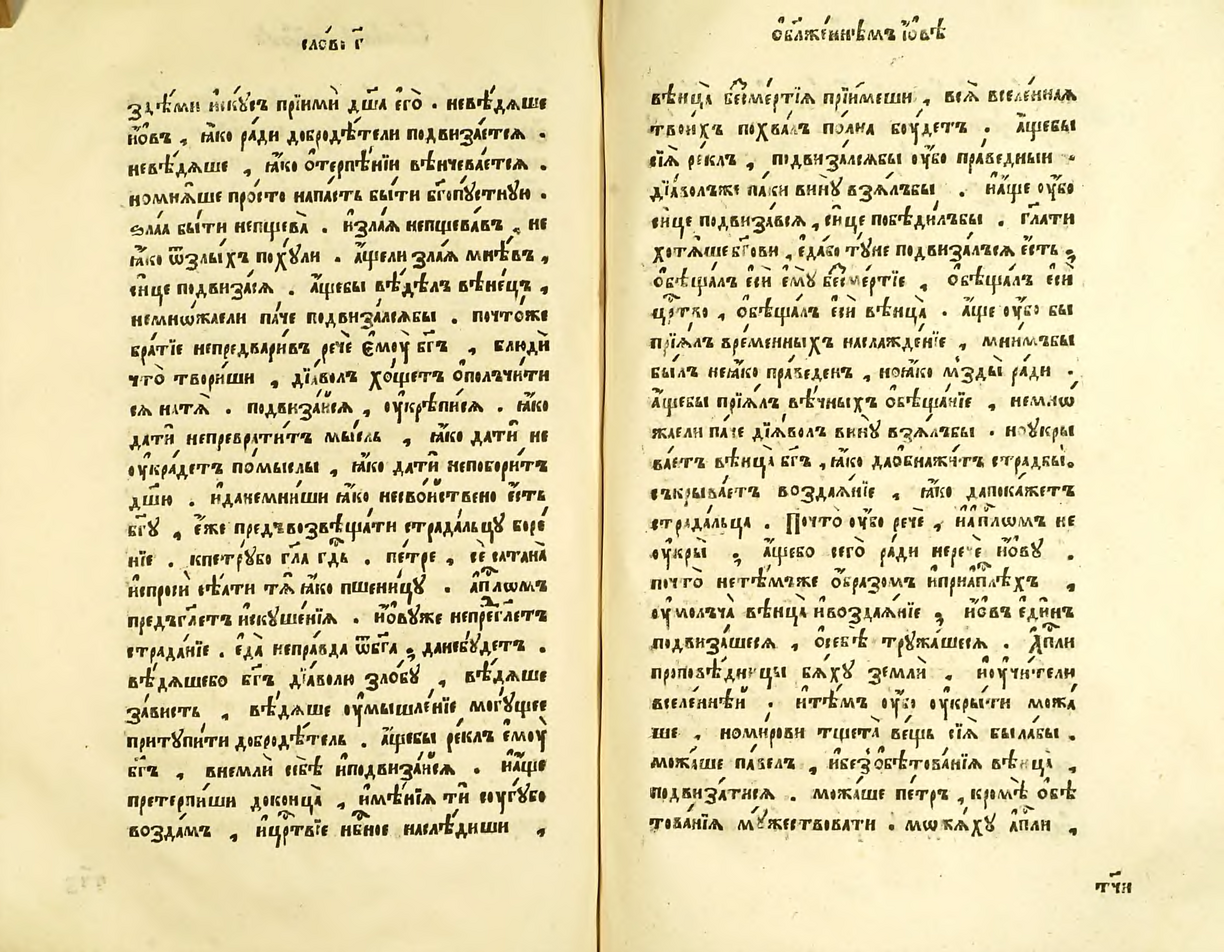 сло́в: г҃
здѣ́ми иску́съ прїими̑ дш҃а̀ є҆го̀ . невѣ́дѧше
и҆́овъ , ꙗ҆́ко ради добродѣ́тели подвиза́етсѧ .
невѣ́дѧше , ꙗ҆́ко ѻ҆терпѣ́нїи вѣнчева́етсѧ .
номнѧ́ше про́сто напа́сть бы́ти бг҃опу́стную .
ѕла̀а бы́ти непщева̀ . и҆зла́ѧ непщева́въ , не
ꙗ҆́ко ѿзлы́хъ поху́ли . а҆́щели зла́ѧ мнѣ́въ ,
си́це подвиза́сѧ . а҆́щебы вѣ́дѣлъ вѣне́цъ ,
немно́жаели па́че подвиза́лсѧбы . почто́же
бра́тїе непредвари́въ речѐ є҆моу̀ бг҃ъ , блюди̑
что̀ твори́ши , дїѧ́волъ хо́щетъ ѻ҆полчи́ти
сѧ натѧ̀ . подвиза́йсѧ , оу҆крѣпи́сѧ . ꙗ҆́ко
дати̑ непревра́титъ мы́сль , ꙗ҆́ко дати̑ не
оу҆кра́детъ по́мыслы , ꙗ҆́ко дати̑ непобори́тъ
дш҃ю . и҆данемни́ши ꙗ҆́ко несво́йствено є҆́сть
бг҃у , є҆́же пре́дъвозвѣща́ти страда́льцу боре́
нїе . кпетру́бо гл҃а гд҃ь . пе́тре , сѐ сатана̀
и҆спроси̑ сѣ́ѧти тѧ̀ ꙗ҆́ко пшени́цу . а҆пⷭ҇лѡмъ
предъгл҃етъ и҆скуше́нїѧ . и҆́овуже непрегл҃етъ
страда́нїе . є҆да̀ непра́вда ѿбг҃а ; данебу́детъ .
вѣ́дѧшебо бг҃ъ дїа́волю зло́бу , вѣ́дѧше
за́висть , вѣ́дѧше оу҆мышле́нїе могу́щее
притупи́ти добродѣ́тель . а҆́щебы ре́клъ є҆моу̀
бг҃ъ , внемли̑ себѣ̀ и҆подвиза́йсѧ . и҆а҆́ще
претерпи́ши доконца̀ , и҆мѣ́нїѧ ти̑ соугу́бо
возда́мъ , и҆црⷭ҇твїе нбⷭ҇ное наслѣ́диши ,
ѻ҆бл҃же́ннѣмъ і҆́овѣ
вѣнца̀ бесме́ртїѧ прїи́меши , всѧ̀ вселе́ннаѧ
твои́хъ похва́лъ полна̀ боу́детъ . а҆́щебы
сїѧ̀ ре́клъ , подвиза́лсѧбы оу҆̀бо пра́ведныи .
дїа́волъже па́ки вину̀ взѧ́лъбы . и҆а҆́ще оу҆̀бо
си́це подвиза́всѧ , си́це побѣди́лъбы . гл҃ати
хотѧ́ше бг҃ови , є҆да́бо ту́не подвиза́лъсѧ є҆́сть ;
ѻ҆бѣща́лъ є҆сѝ є҆му̀ бесме́ртїе , ѻ҆бѣща́лъ є҆сѝ
црⷭ҇тво , ѻ҆бѣща́лъ є҆сѝ вѣнца̀ . а҆́ще оу҆̀бо бы
прїѧ́лъ вре́менныхъ наслажде́нїе , мни́мъбы
бы́лъ неꙗ҆́ко пра́веденъ , ноꙗ҆́ко мзды̀ ра́ди .
а҆́щебы прїѧ́лъ вѣ́чныхъ ѻ҆бѣща́нїе , немно́
жаели па́че дїѧ́волъ вину̀ взѧ́лъбы . ноукры
ва́етъ вѣнца̀ бг҃ъ , ꙗ҆́ко даѻ҆бнажи́тъ стра́дбы .
съкрыва́етъ воздаѧ́нїе , ꙗ҆́ко дапока́жетъ
страда́льца . Почто̀ оу҆̀бо речѐ , на҆пⷭ҇лѡмъ не
оу҆кры̀ ; а҆́щебо сего̀ ра́ди неречѐ и҆́ову .
почто̀ нетѣ́мъже ѻ҆́бразомъ и҆приа҆пⷭ҇лѣхъ ,
оу҆молъча̀ вѣнца̀ и҆воздаѧ́нїе ; и҆́овъ є҆ди́нъ
подвиза́шесѧ , ѻ҆себѣ̀ тружа́шесѧ . А҆пⷭ҇ли
проповѣ́дницы бѧ́ху земли̑ , и҆оучи́тели
вселе́ннѣй . и҆тѣ́мъ оу҆̀бо оу҆кры́ти можа́
ше , номи́рови тщета̀ ве́щь сїѧ̀ была́бы .
можа́ше па́велъ , и҆безѻ҆бѣтова́нїѧ вѣнца̀ ,
подвиза́тисѧ . можа́ше пе́тръ , кромѣ̀ ѻ҆бѣ
това́нїѧ му́жествовати . мѡжа́ху а҆пⷭ҇ли ,
т҃чи